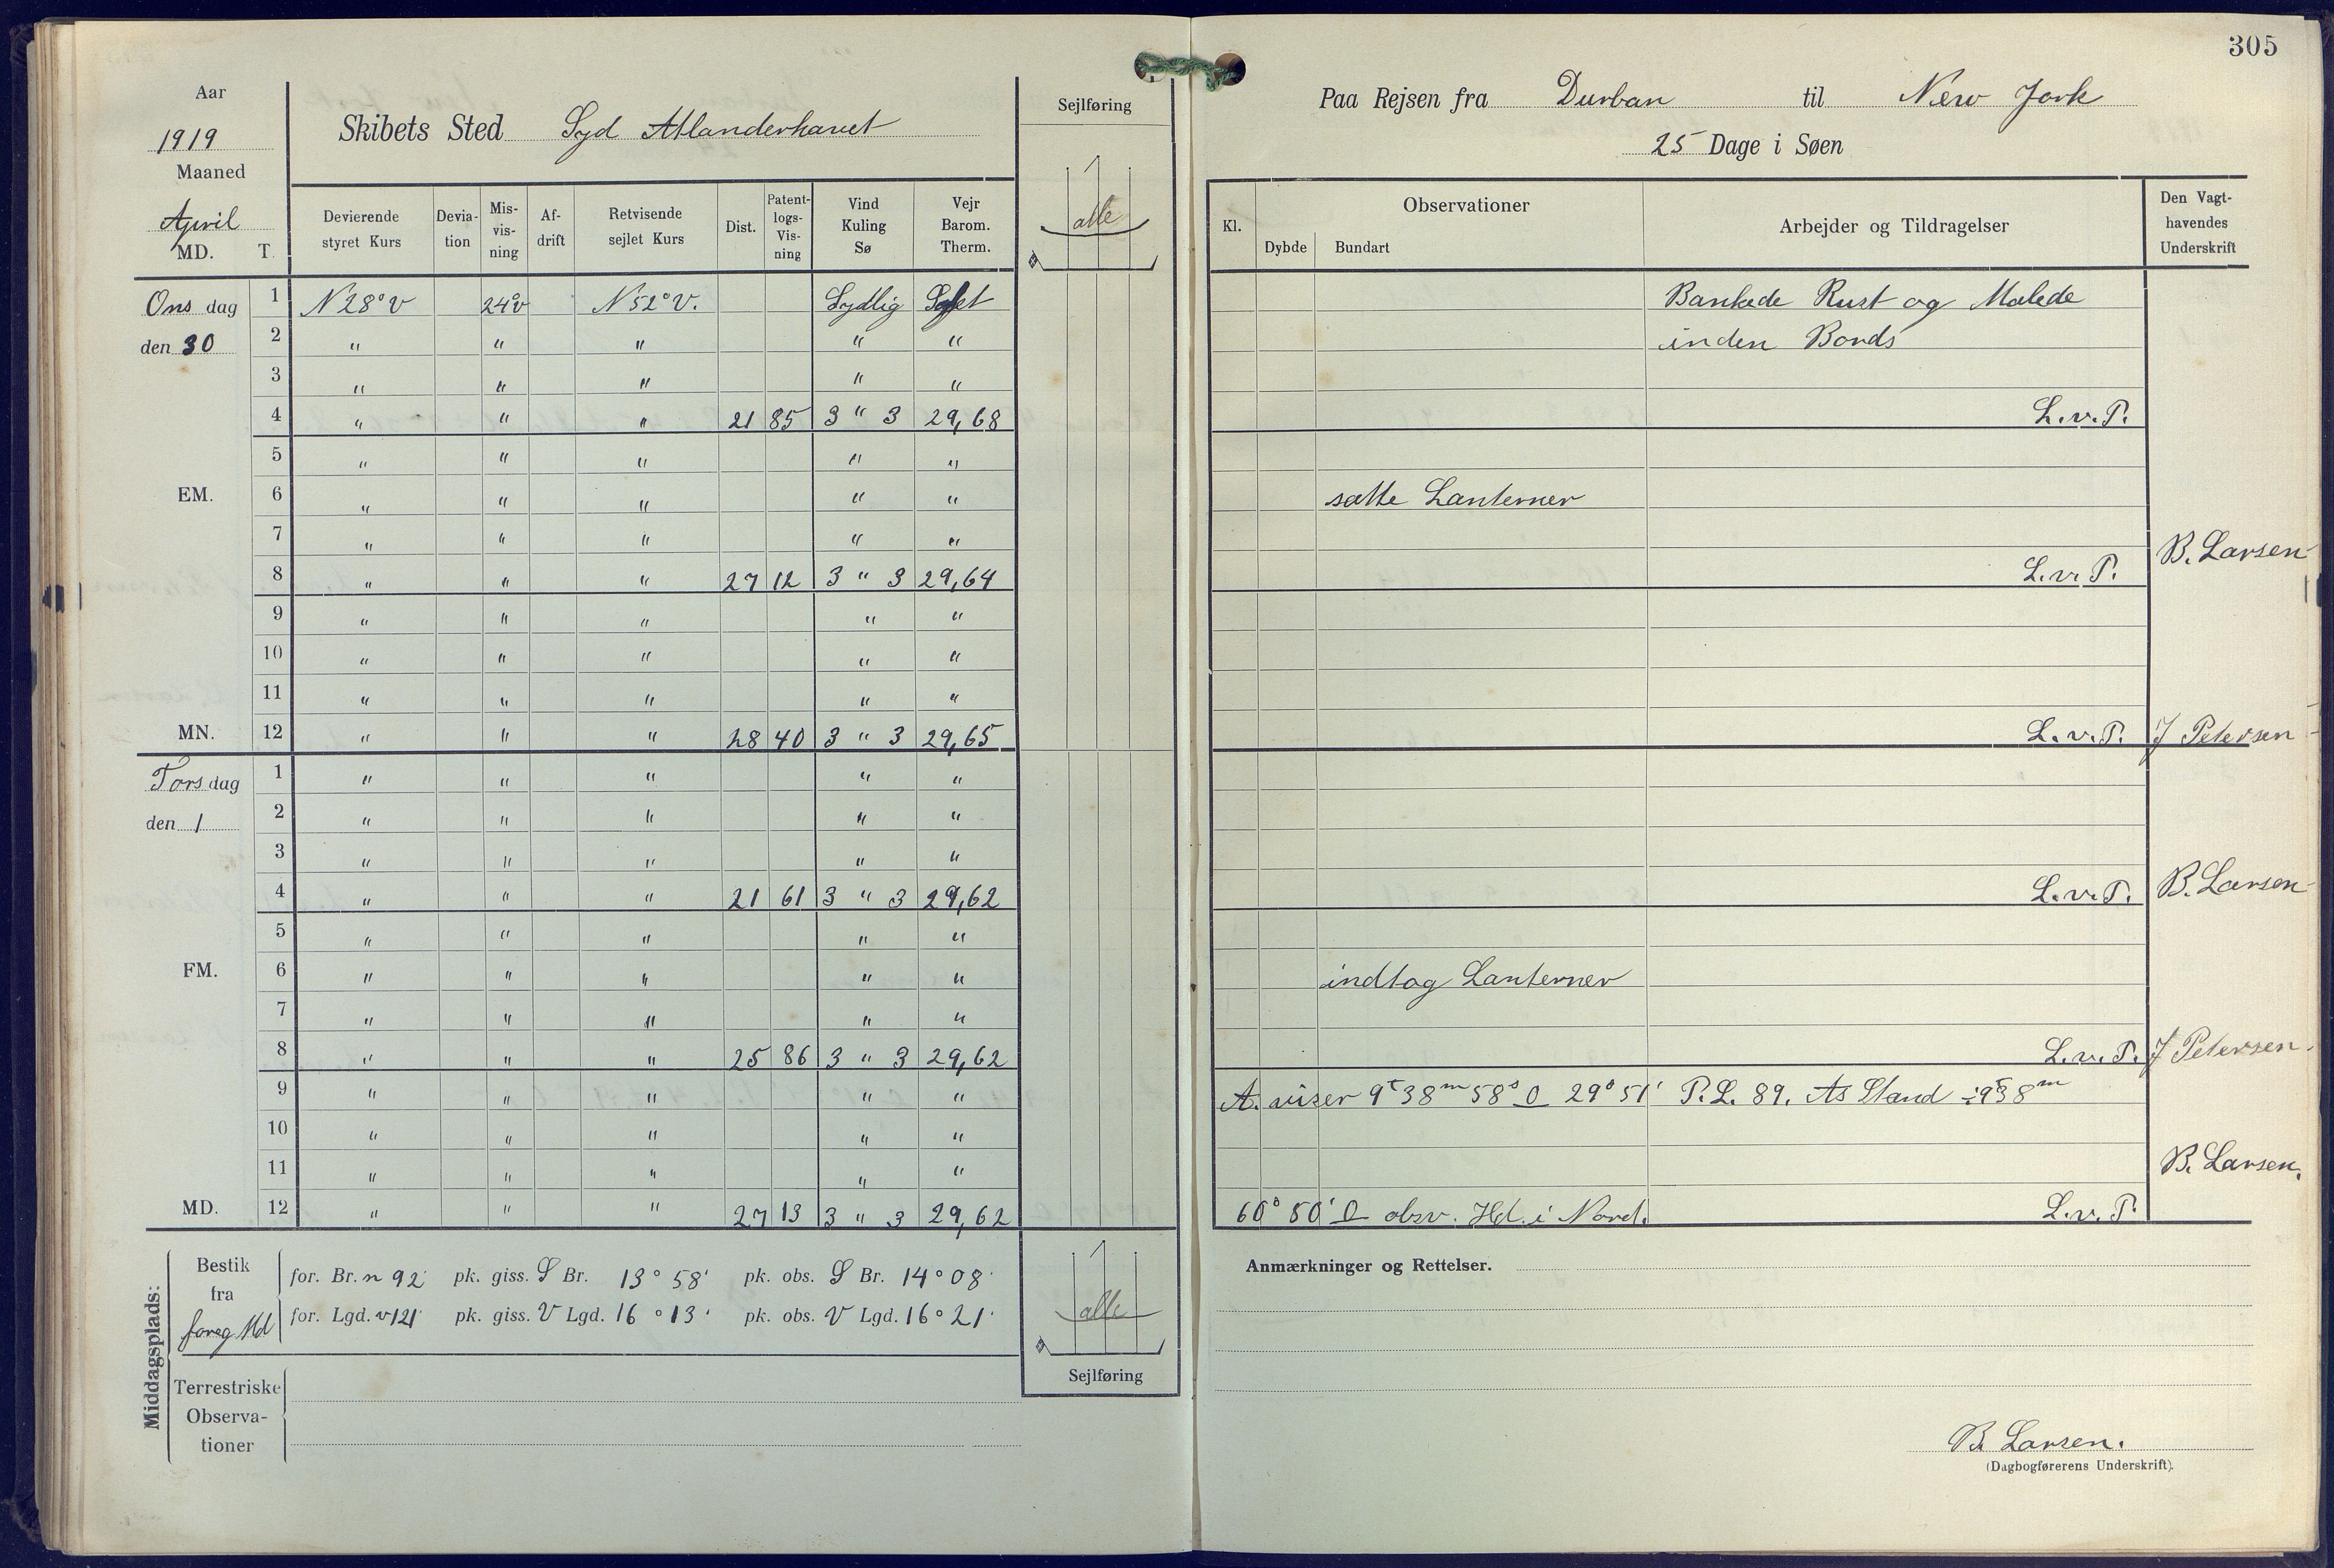 305
Aar
1919
Maaned
April
MD. T.
Skibets Sted Syd Atlanderhavet
Sejlføring
alle
Paa Rejsen fra Durban til New Jork
25 Dage i Søen
Devierende styret Kurs
Deviation
Misvisning
Afdrift
Retvisende sejlet Kurs
Dist.
Patentlogs-Visning
Vind Kuling Sø
Vejr Barom. Therm.
Kl.
Observationer
Dybde Bundart
Arbejder og Tildragelser
Den Vagthavendes Underskrift
Ons dag 1 N 28° V 24° v N 52° V. Sydlig Bankede Rust og Malede
den 30 2 " " " " " inden Bords
3 " " " " "
4 " " " 21 85 3 " 3 29,68 L.v.P.
5 " " " " "
EM. 6 " " " " " satte Lanterner
7 " " " " " B. Larsen
8 " " " 27 12 3 " 3 29,64 L.v.P.
9 " " " " "
10 " " " " "
11 " " " " "
MN. 12 " " " 28 40 3 " 3 29,65 L.v.P. J Petersen
Tors dag 1 " " " " "
den 1 2 " " " " "
3 " " " " "
4 " " " 21 61 3 " 3 29,62 L.v.P. B. Larsen
5 " " " " "
FM. 6 " " " " " indtog Lanterner
7 " " " " "
8 " " " 25 86 3 " 3 29,62 L.v.P. J Petersen.
9 " " " " " A. viser 9ᵗ 38ᵐ 58ˢ O 29° 51' P.L. 89. As Stand ÷ 9ˢ38ᵐ
10 " " " " "
11 " " " " " B. Larsen.
MD. 12 " " " 27 13 3 " 3 29,62 60° 50' O obsv. Hd. i Nord. L.v.P.
Middagsplads:
Bestik fra foreg Md
for. Br. n 92' pk. giss. S Br. 13° 58' pk. obs. S Br. 14° 08'
for. Lgd. v 121' pk. giss. V Lgd. 16° 13' pk. obs. V Lgd. 16° 21'
Terrestriske Observationer
alle
Sejlføring
Anmærkninger og Rettelser.
B. Larsen.
(Dagbogførerens Underskrift).